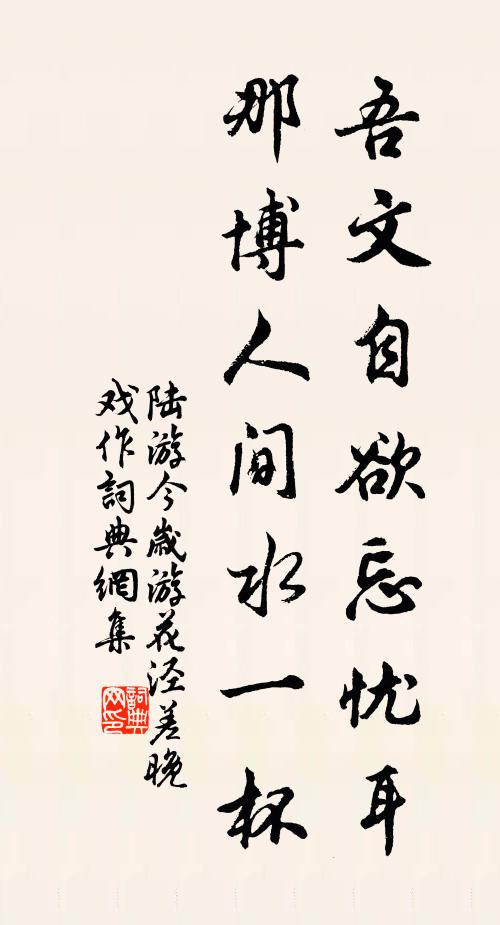 吾文自欲忘忧耳
那博人间水一杯
陆游今歳游花泾差晚
戏作詞典網集
詞典网印